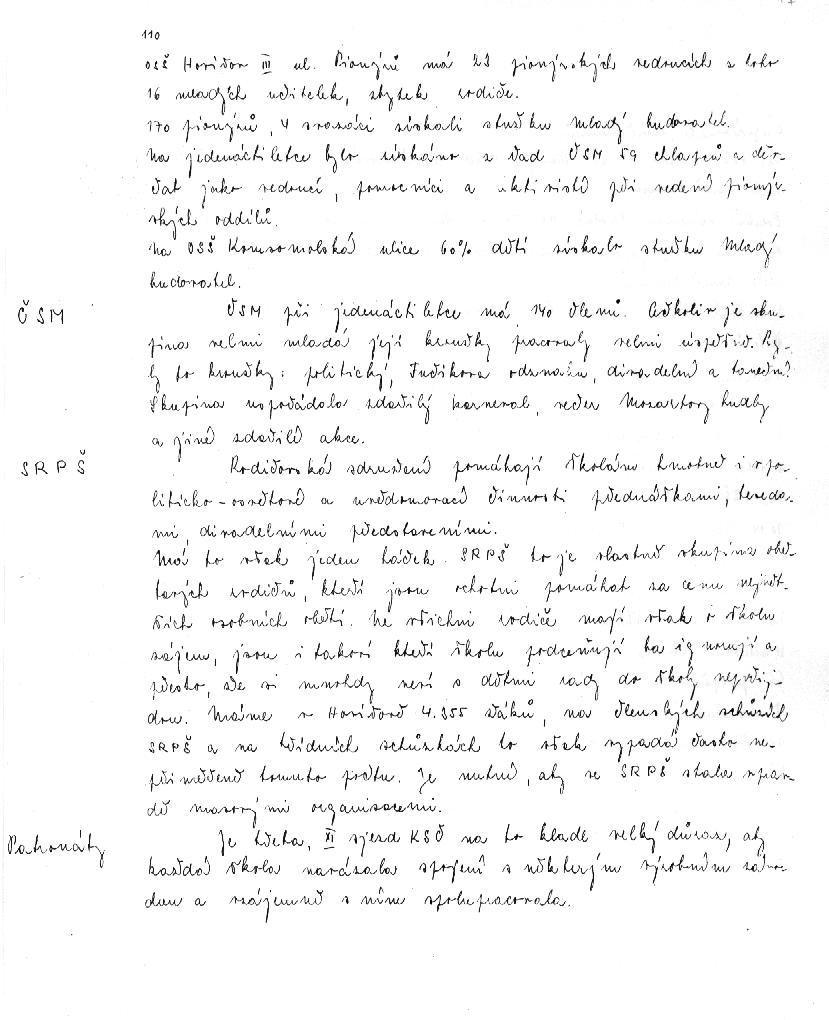 110
OSŠ Horidor III ul. Pionýrů má 23 pionýrských vedoucích z toho
16 mladých učitelek, zbytek rodiče.
170 pionýrů, 4 svazáci získali stužku Mladý budovatel.
Na jedenáctiletce bylo získáno z řad ČSM 59 chlapců a děv-
čat jako vedoucí, pomocníci a aktivisté při vedení pionýr-
ských oddílů.
Na OSŠ Komsomolská ulice 60% dětí získalo stužku Mladý
budovatel.
ČSM
ČSM při jedenáctiletce má 140 členů. Ačkoliv je sku-
pina velmi mladá její kroužky pracovaly velmi úspěšně. By-
ly to kroužky: politický, Fučíkova odznaku, divadelní a taneční.
Skupina uspořádala zdařilý karneval, večer Mozartovy hudby
a jiné zdařilé akce.
SRPŠ
Rodičovská sdružení pomáhají školám hmotně i v po-
liticko-osvětové a uvědomovací činnosti přednáškami, beseda-
mi, divadelními představeními.
Má to však jeden háček. SRPŠ to je vlastně skupina obě-
tavých rodičů, kteří jsou ochotni pomáhat za cenu největ-
ších osobních obětí. Ne všichni rodiče mají však o školu
zájem, jsou i takoví kteří školu podceňují ba ignorují a
přesto, že si mnohdy neví s dětmi rady do školy nepřij-
dou. Máme v Horidoře 4.355 žáků, na členských schůzích
SRPŠ a na třídních schůzkách to však vypadá často ne-
přiměřeně tomuto počtu. Je nutné, aby se SRPŠ stala oprav-
dě masovými organisacemi.
Patronáty
Je třeba, XI sjezd KSČ na to klade velký důraz, aby
každá škola navázala spojení s některým výrobním závo-
dem a vzájemně s ním spolupracovala.